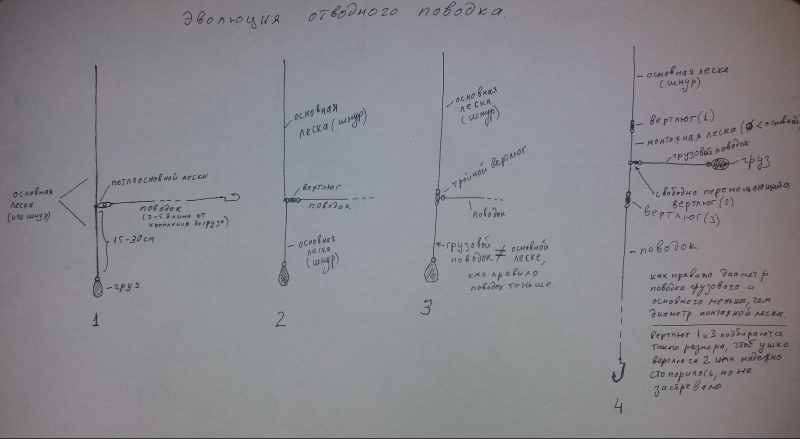 Эволюция отводного поводка.
основная
леска
(или шнур)
петля основной лески
поводок
(2-5 длина от
крепления до груза)
15-30см
груз
1
основная
леска (шнур)
вертлюг
поводок
основная
леска
(шнур)
2
основная
леска
(шнур)
тройной вертлюг
поводок
грузовой
поводок ≠ основной
леске,
как правило
поводок тоньше.
3
основная леска
(шнур)
вертлюг (1)
монтажная леска (Ø < основной
грузовой
поводок
груз
свободно перемещающийся
вертлюг (2)
вертлюг (3)
поводок
как правило диаметр
поводка грузового и
основного меньше, чем
диаметр монтажной лески.
Вертлюг 1 и 3 подбираются
такого размера, чтоб ушко
вертлюга 2 ими надежно
стопорилось, но не
застревало
4